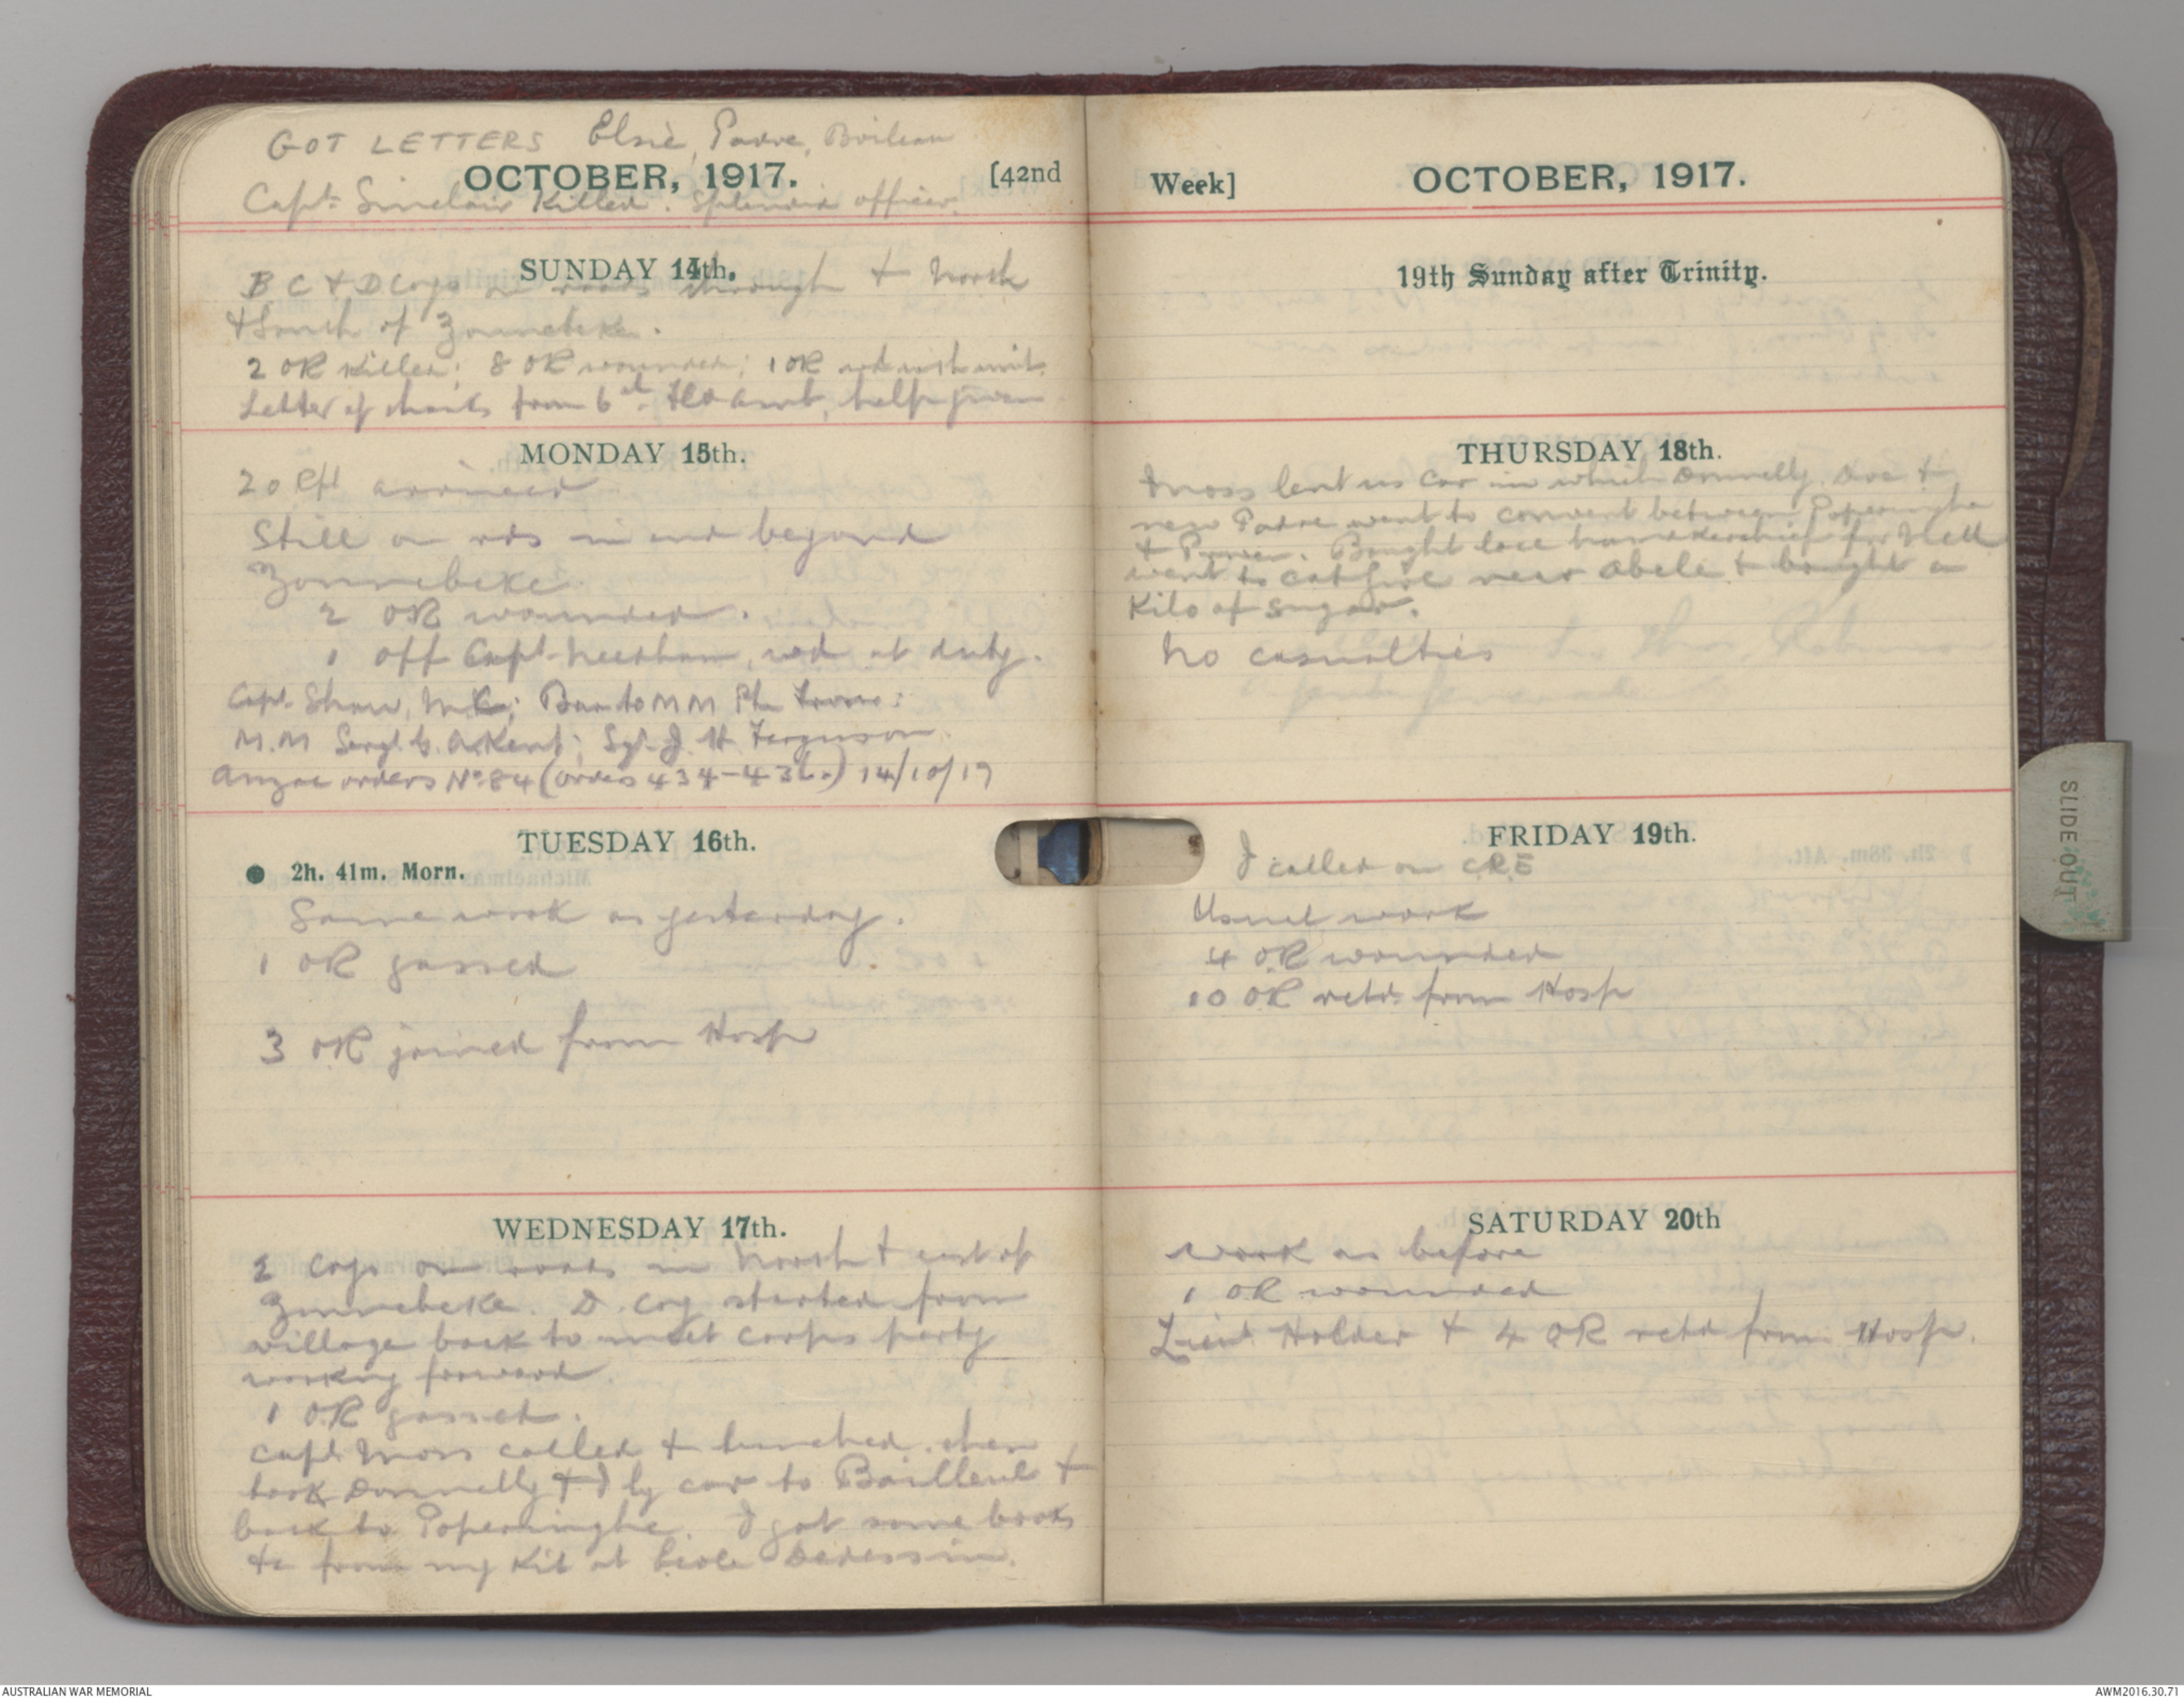 GOT LETTERS Elsie, Padre, Boileau
OCTOBER, 1917. [42nd
Capt. Sinclair Killed. Splendid officer.
SUNDAY 14th.
B C & D Coys on roads through & North
& South of Zonnebeke.
2 OR killed; 8 OR wounded; 1 OR wd with unit.
Letter of thanks from 6th Fld Amb, help given
MONDAY 15th.
20 Rft arrived
Still on rds in and beyond
Zonnebeke.
2 OR wounded.
1 off Capt. Needham, wd at duty.
Capt. Shaw, M.C; Bar to MM
M.M Sergt. Kent; Sgt. J. H. Ferguson.
Anzac orders No. 84 (orders 434-436.) 14/10/17
TUESDAY 16th.
2h. 41m. Morn.
Same work as yesterday.
1 OR gassed
3 OR joined from Hosp
WEDNESDAY 17th.
2 Coys on roads in North & east of
Zonnebeke. D. Coy started from
village back to meet Corps party
working forward.
1 OR gassed.
Capt Moss called & lunched. then
took Donnelly & I by car to Bailleul &
back to Poperinghe. I got some books
&c from my kit at Ecole
Week] OCTOBER, 1917.
19th Sunday after Trinity.
THURSDAY 18th.
Moss lent us car in which Donnelly, &
new Padre went to convent between Poperinghe
& Bought lace handkerchief for Nell
went to near Abele & bought a
Kilo of sugar.
No casualties
FRIDAY 19th.
I called on CRE
Usual work
4 OR wounded
10 OR retd. from Hosp
SATURDAY 20th
Work as before
1 OR wounded
Lieut Holder & 4 OR retd from Hosp.
SLIDE OUT
AUSTRALIAN WAR MEMORIAL
AWM2016.30.71